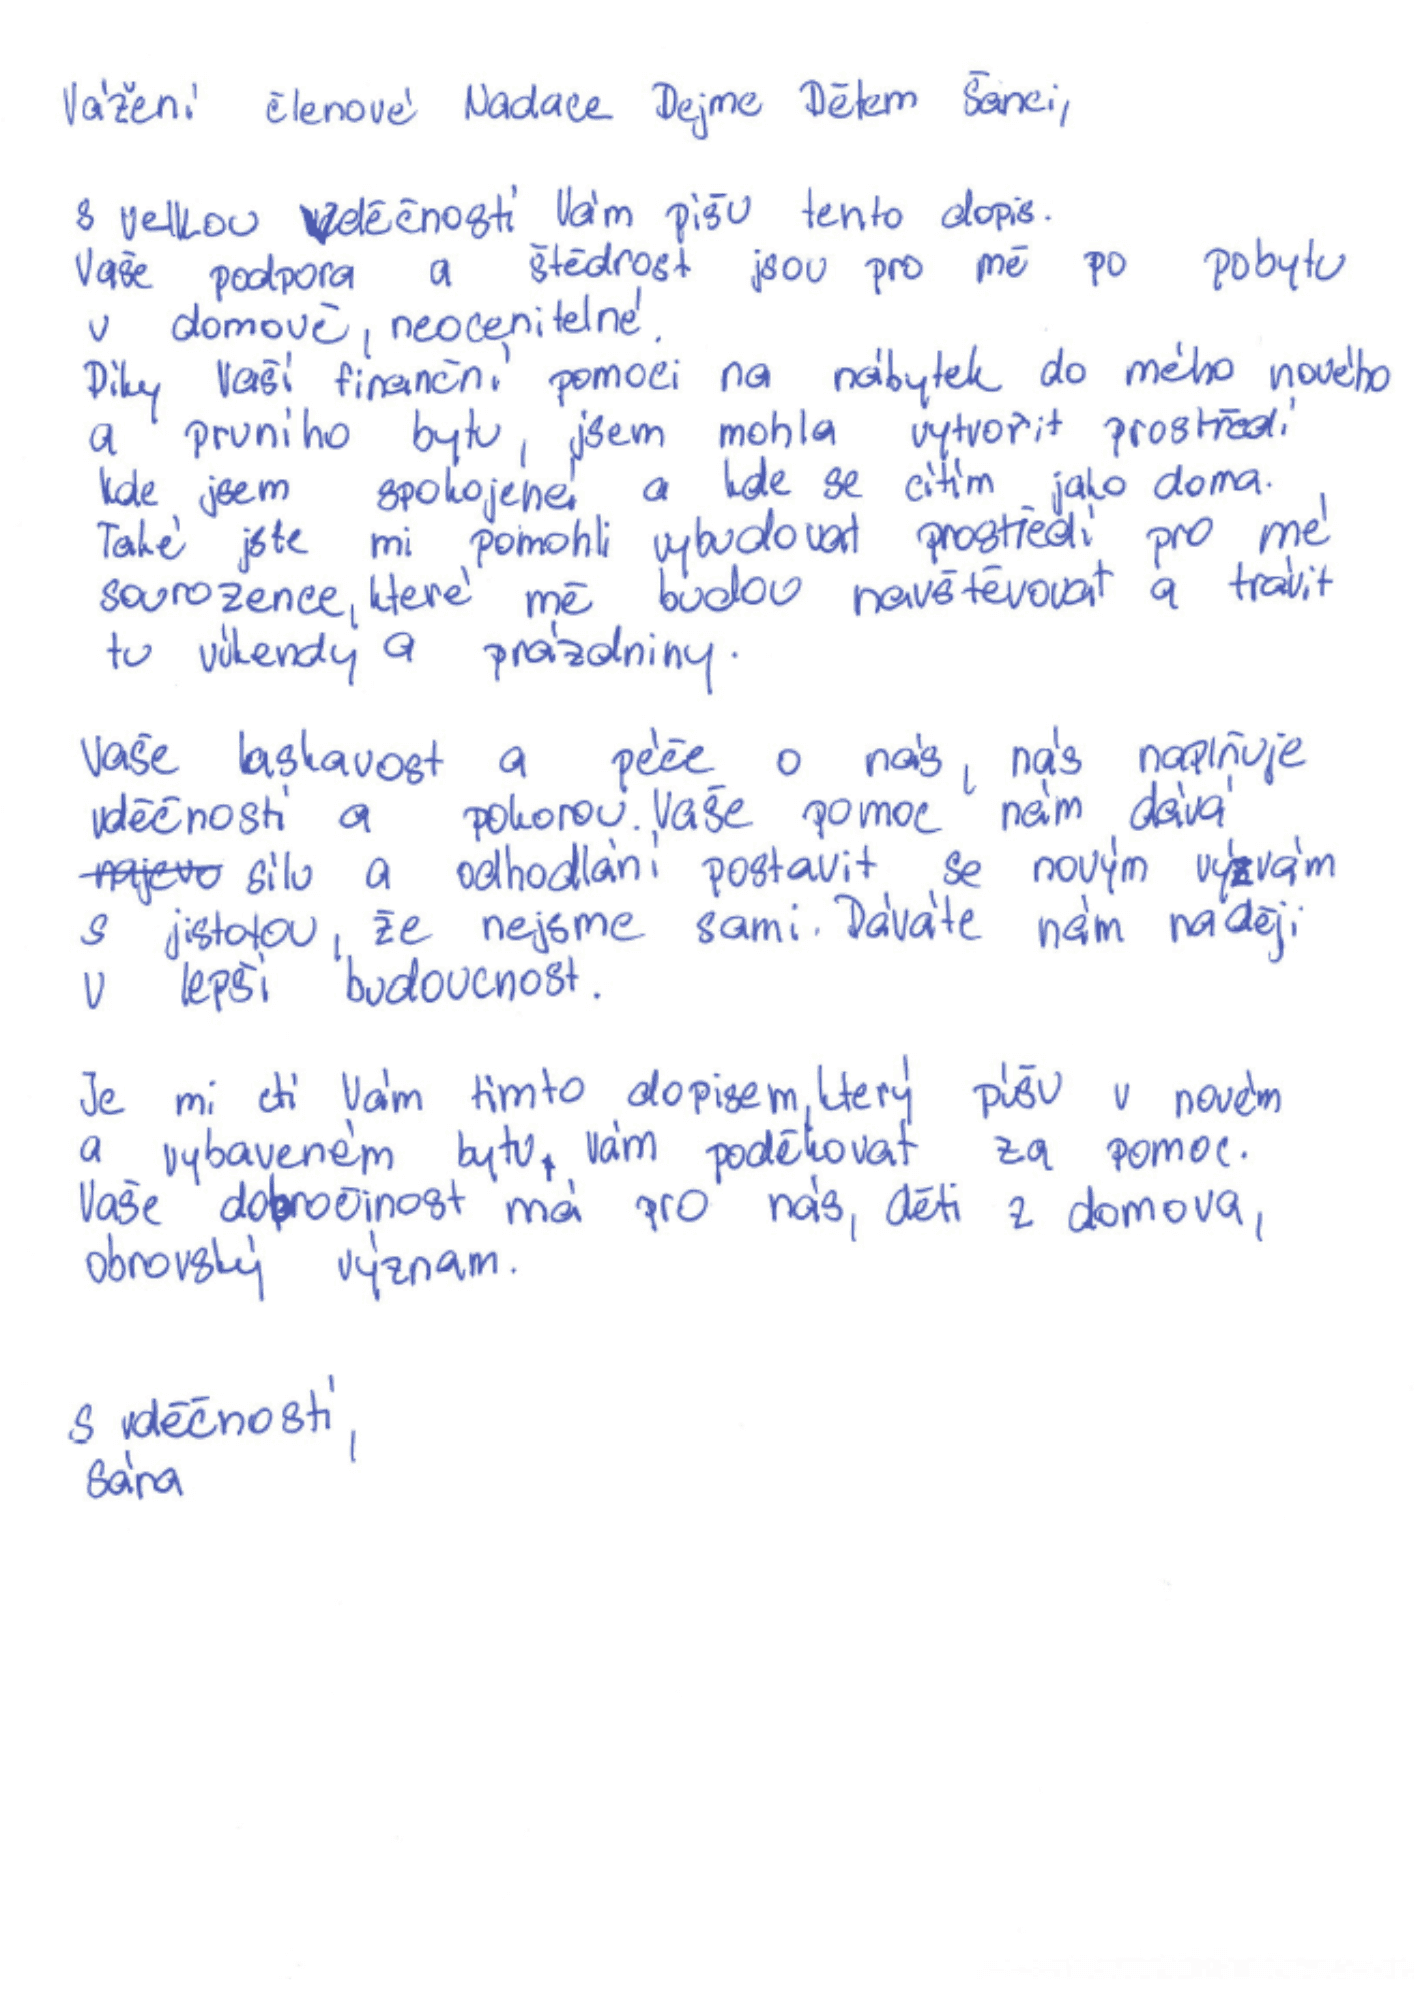 Vážení členové Nadace Dejme Dětem Šanci,
s velkou vděčností Vám píšu tento dopis.
Vaše podpora a štědrost jsou pro mě po pobytu
v domově, neocenitelné.
Díky Vaší finanční pomoci na nábytek do mého nového
a prvního bytu, jsem mohla vytvořit prostředí
kde jsem spokojená a kde se cítím jako doma.
Také jste mi pomohli vybudovat prostředí pro mé
sourozence, které mě budou navštěvovat a trávit
tu víkendy a prázdniny.
Vaše laskavost a péče o nás, nás naplňuje
vděčností a pokorou. Vaše pomoc nám dává
najevo sílu a odhodlání postavit se novým výzvám
s jistotou, že nejsme sami. Dáváte nám naději
v lepší budoucnost.
Je mi ctí Vám tímto dopisem, který píšu v novém
a vybaveném bytu, vám poděkovat za pomoc.
Vaše dobročinost má pro nás, děti z domova,
obrovský význam.
S vděčností,
Sára